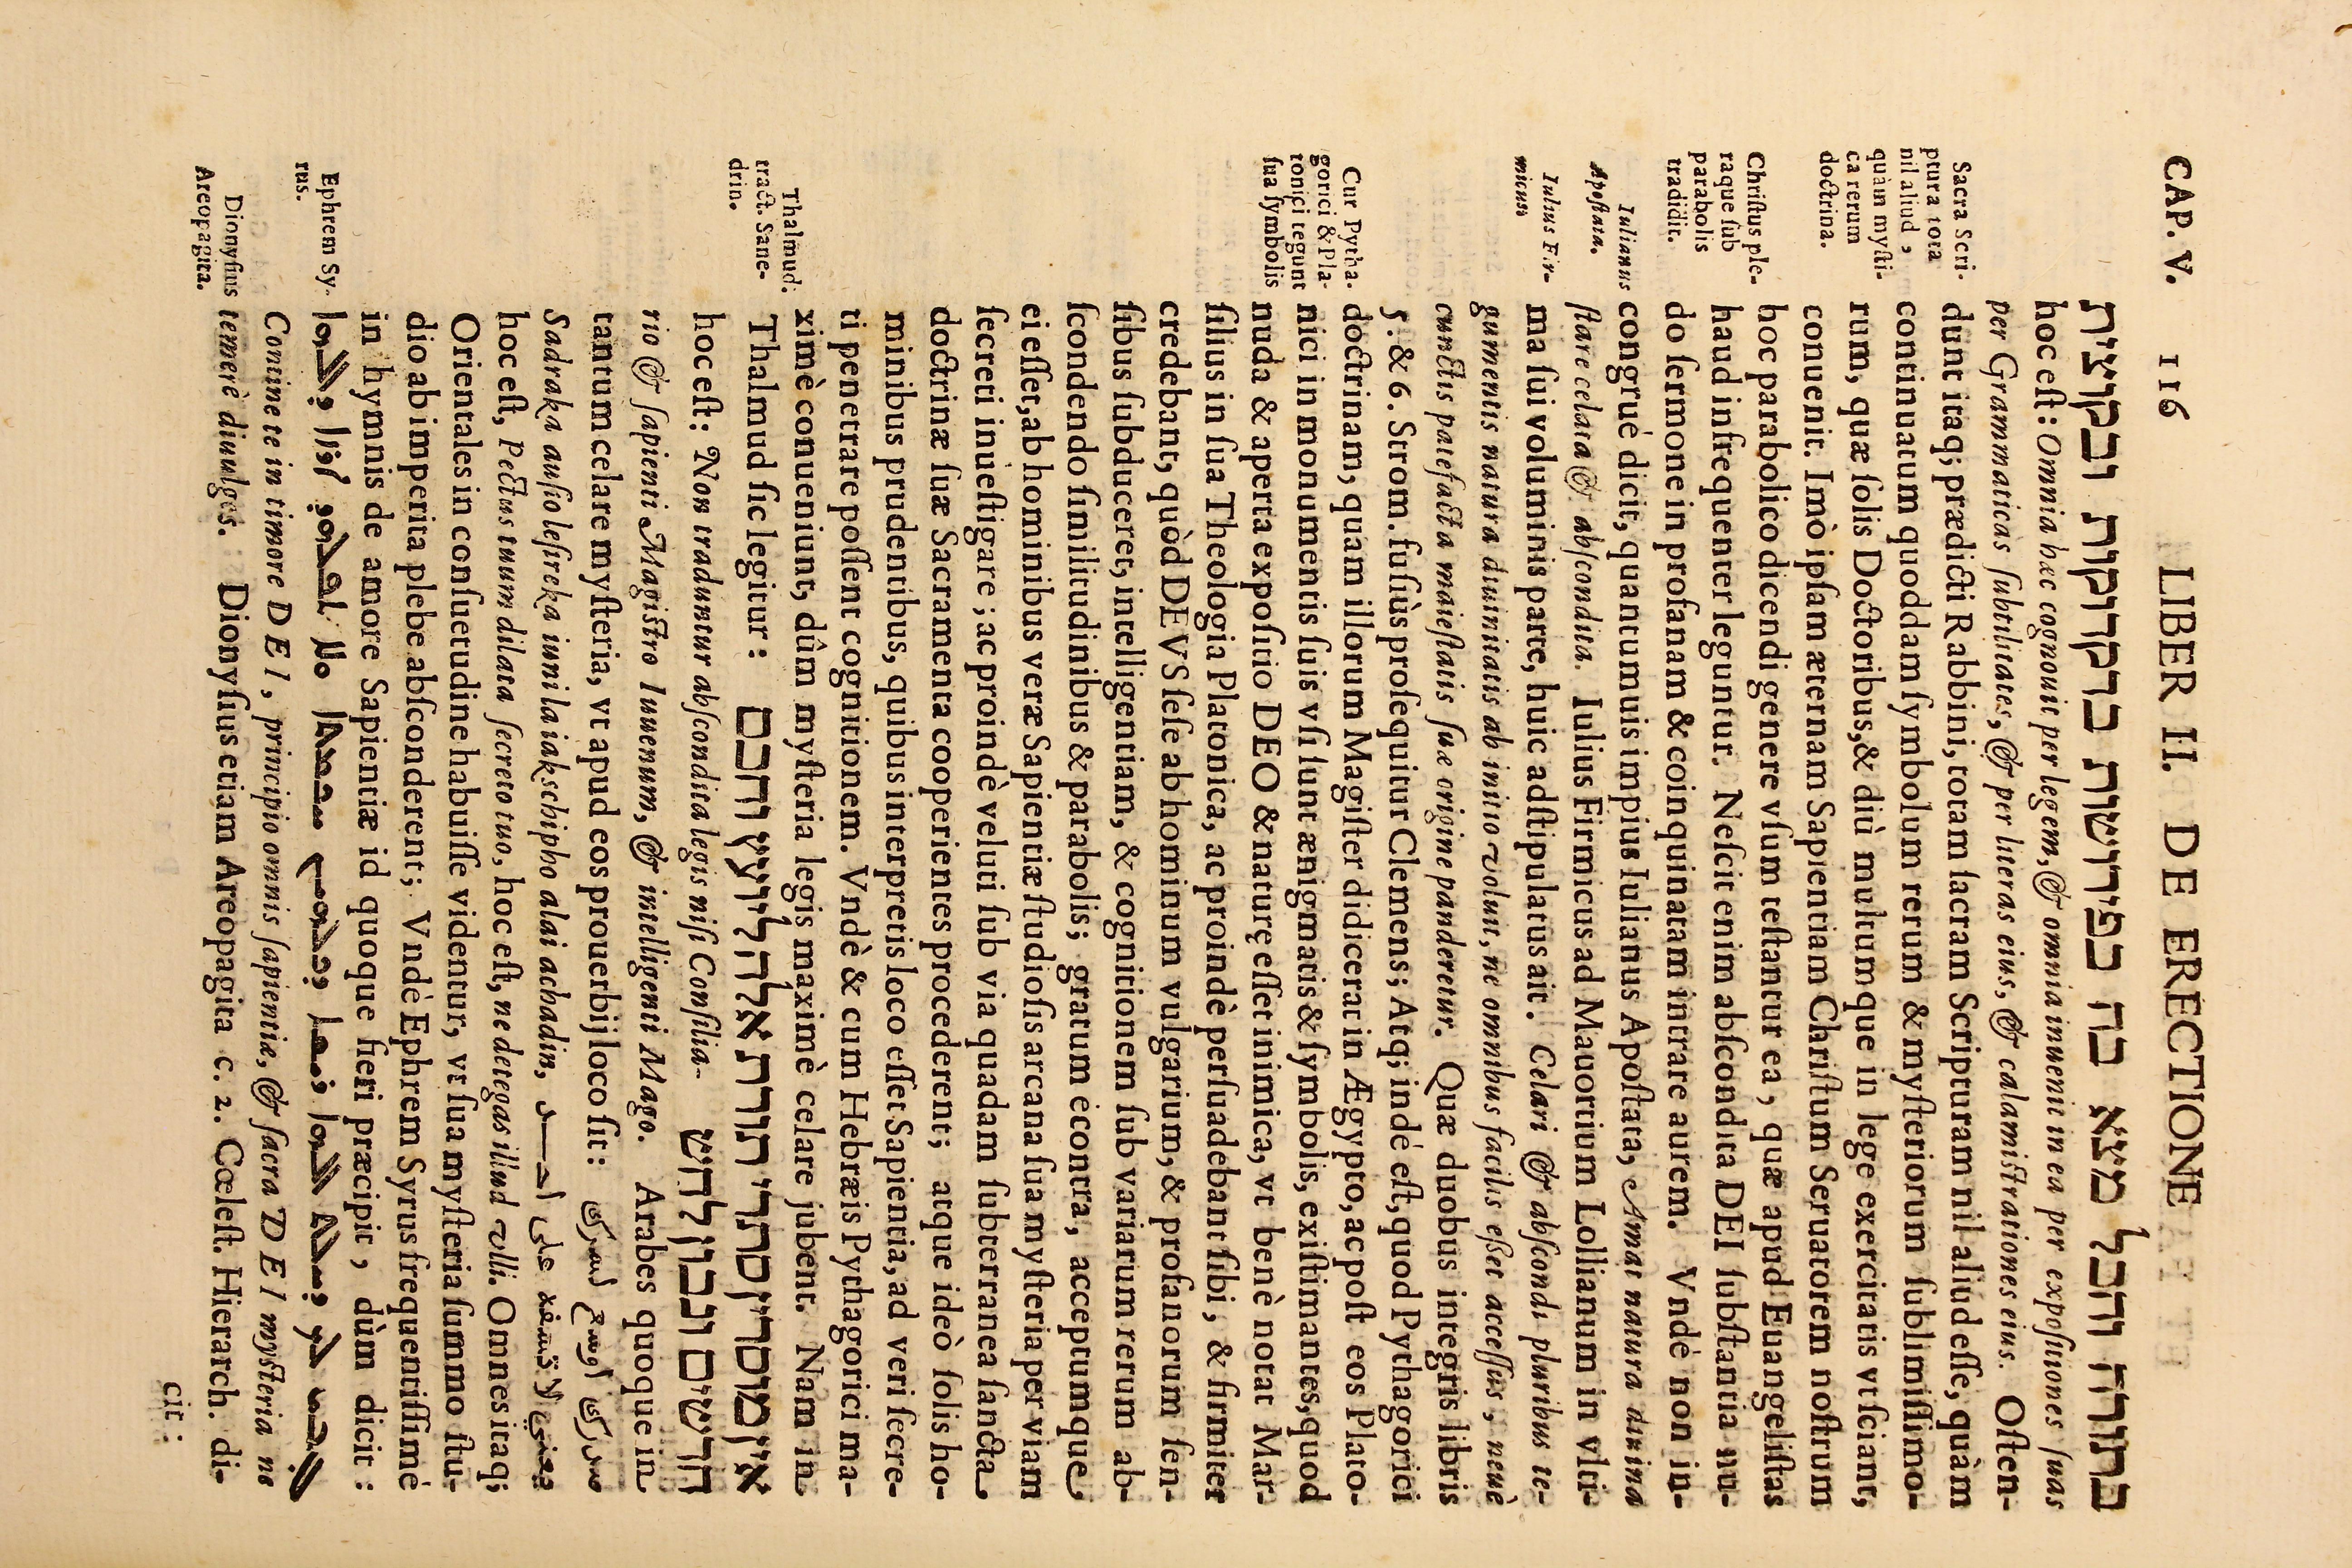 CAP. V. 116 LIBER II. DE ERECTIONE
בתורה והכל מצא בה בפירושות בדקדוקות ובקוצית
hoc eſt: Omnia hæc cognouit per legem, & omnia inuenit in ea per expoſitiones ſuas
per Grammaticas ſubtilitates, & per literas eius, & calamiſtrationes eius. Oſten-
Sacra Scri-
ptura tota
nil aliud,
quàm myſti-
ca rerum
doctrina.
dunt itaq; prædicti Rabbini, totam ſacram Scripturam nil aliud eſſe, quàm
continuatum quoddam ſymbolum rerum & myſteriorum ſublimiſſimo-
rum, quæ ſolis Doctoribus, & diù multumque in lege exercitatis vt ſciant,
conuenit. Imò ipſam æternam Sapientiam Chriſtum Seruatorem noſtrum
Chriſtus ple-
raque ſub
parabolis
tradidit.
hoc parabolico dicendi genere vſum teſtantur ea, quæ apud Euangeliſtas
haud infrequenter leguntur. Neſcit enim abſcondita DEI ſubſtantia nu-
do ſermone in profanam & coinquinatam intrare aurem. Vndè non in-
Iulianus
Apoſtata.
congruè dicit, quantumuis impius Iulianus Apoſtata, Amat natura diuina
ſtare celata & abſcondita. Iulius Firmicus ad Mauortium Lollianum in vlti-
Iulius Fir-
micus.
ma ſui voluminis parte, huic adſtipulatus ait. Celari & abſcondi pluribus te-
gumentis natura diuinitatis ab initio voluit, ne omnibus facilis eßet acceſſus, neuè
cunctis patefacta maieſtatis ſuæ origine panderetur. Quæ duobus integris libris
5. & 6. Strom. fuſiùs proſequitur Clemens; Atq; indè eſt, quod Pythagorici
Cur Pytha-
gorici & Pla-
tonici tegunt
ſua ſymbolis
doctrinam, quam illorum Magiſter didicerat in Ægypto, ac poſt eos Plato-
nici in monumentis ſuis vſi ſunt ænigmatis & ſymbolis, exiſtimantes, quod
nuda & aperta expoſitio DEO & naturę eſſet inimica, vt benè notat Mar-
ſilius in ſua Theologia Platonica, ac proindè perſuadebant ſibi, & firmiter
credebant, quòd DEVS ſeſe ab hominum vulgarium, & profanorum ſen-
ſibus ſubduceret, intelligentiam, & cognitionem ſub variarum rerum ab-
ſcondendo ſimilitudinibus & parabolis; gratum econtra, acceptumque
ei eſſet, ab hominibus veræ Sapientiæ ſtudioſis arcana ſua myſteria per viam
ſecreti inueſtigare; ac proindè veluti ſub via quadam ſubterranea ſancta
doctrinæ ſuæ Sacramenta cooperientes procederent; atque ideò ſolis ho-
minibus prudentibus, quibus interpretis loco eſſet Sapientia, ad veri ſecre-
ti penetrare poſſent cognitionem. Vndè & cum Hebræis Pythagorici ma-
ximè conueniunt, dûm myſteria legis maximè celare jubent. Nam in
Thalmud:
tract. Sane-
drin.
Thalmud ſic legitur: אין מוסרין סתרי תורת אלה ליועץ וחכם
חרשים ונבון לחש
hoc eſt: Non traduntur abſcondita legis niſi Conſilia-
rio & ſapienti Magiſtro Iuuenum, & intelligenti Mago. Arabes quoque in
tantum celare myſteria, vt apud eos prouerbij loco ſit: صدرك اوسع لسرك
Sadraka auſiolefireka iumi la iakschipho alai achadin,
hoc eſt, Pectus tuum dilata ſecreto tuo, hoc eſt, ne detegas illud vlli. Omnes itaq;
Orientales in conſuetudine habuiſſe videntur, vt ſua myſteria ſummo ſtu-
dio ab imperita plebe abſconderent; Vndè Ephrem Syrus frequentiſſimè
in hymnis de amore Sapientiæ id quoque fieri præcipit, dùm dicit:
Ephrem Sy-
rus.
Contine te in timore DEI, principio omnis ſapientiæ, & ſacra DEI myſteria ne
Dionyſius
Areopagita.
temerè diuulges. Dionyſius etiam Areopagita c. 2. Cœleſt. Hierarch. di-
cit: